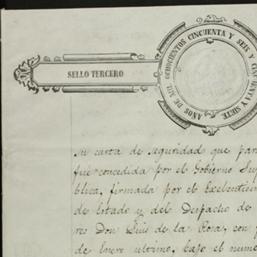 SELLO TERCERO
AÑOS DE MIL OCHOCIENTOS CINCUENTA Y SEIS Y CINCUENTA Y SIETE
su carta de seguridad que para
fue concedida por el Gobierno Sup
blica, firmada por el Excelentisi
de Estado y del Despacho de
res Don Luis de la Rosa, con
de Enero ultimo, bajo el nume